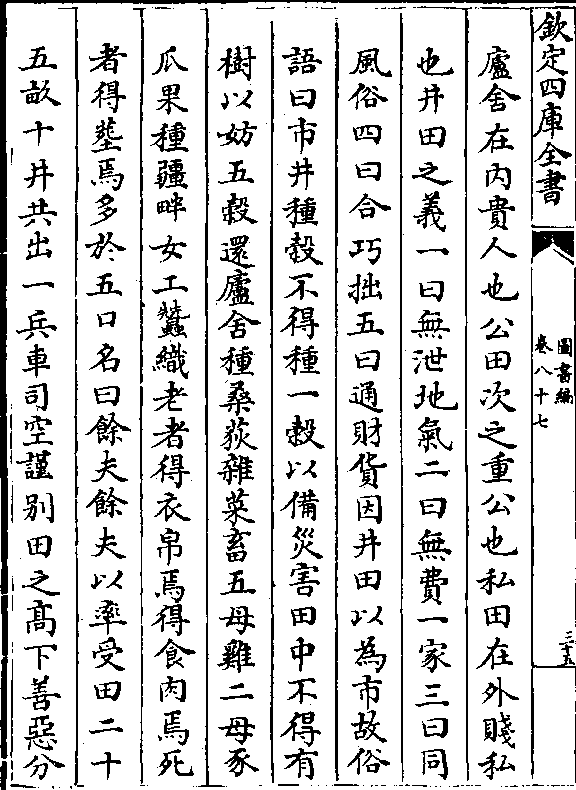 欽定四庫全書
圖書編
卷八十七
三十五
廬舍在内貴人也公田次之重公也私田在外賤私
也井田之義一曰無泄地氣二曰無費一家三曰同
風俗四曰合巧拙五曰通財貨因井田以為市故俗
語曰市井種穀不得種一穀以備災害田中不得有
樹以妨五穀還廬舍種桑荻雜菜畜五母雞二母豕
瓜果種疆畔女工蠶織老者得衣帛焉得食肉焉死
者得塟焉多於五口名曰餘夫餘夫以率受田二十
五畝十井共出一兵車司空謹别田之髙下善惡分